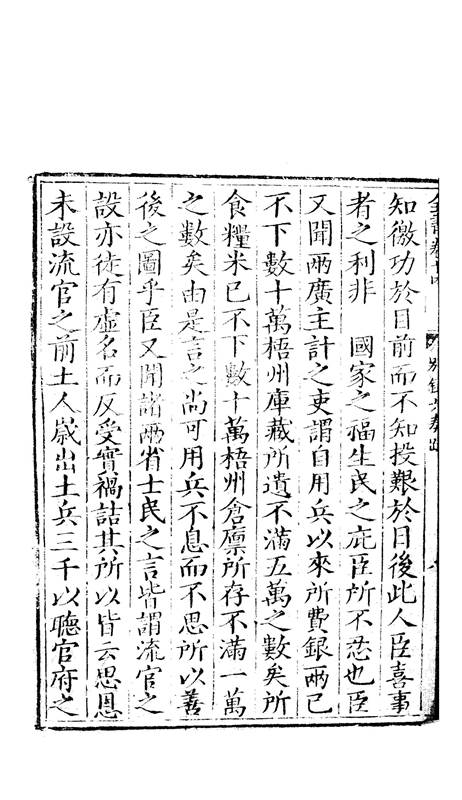 全書卷十四
別錄六奏疏
知徼功於目前而不知投艱於日後此人臣喜事
者之利非　國家之福生民之庇臣所不忍也臣
又聞兩廣主計之吏謂自用兵以來所費銀兩已
不下數十萬梧州庫藏所遺不滿五萬之數矣所
食糧米已不下數十萬梧州倉廩所存不滿一萬
之數矣由是言之尚可用兵不息而不思所以善
後之圖乎臣又聞諸兩省士民之言皆謂流官之
設亦徒有虛名而反受實禍詰其所以皆云思恩
未設流官之前土人歲出土兵三千以聽官府之